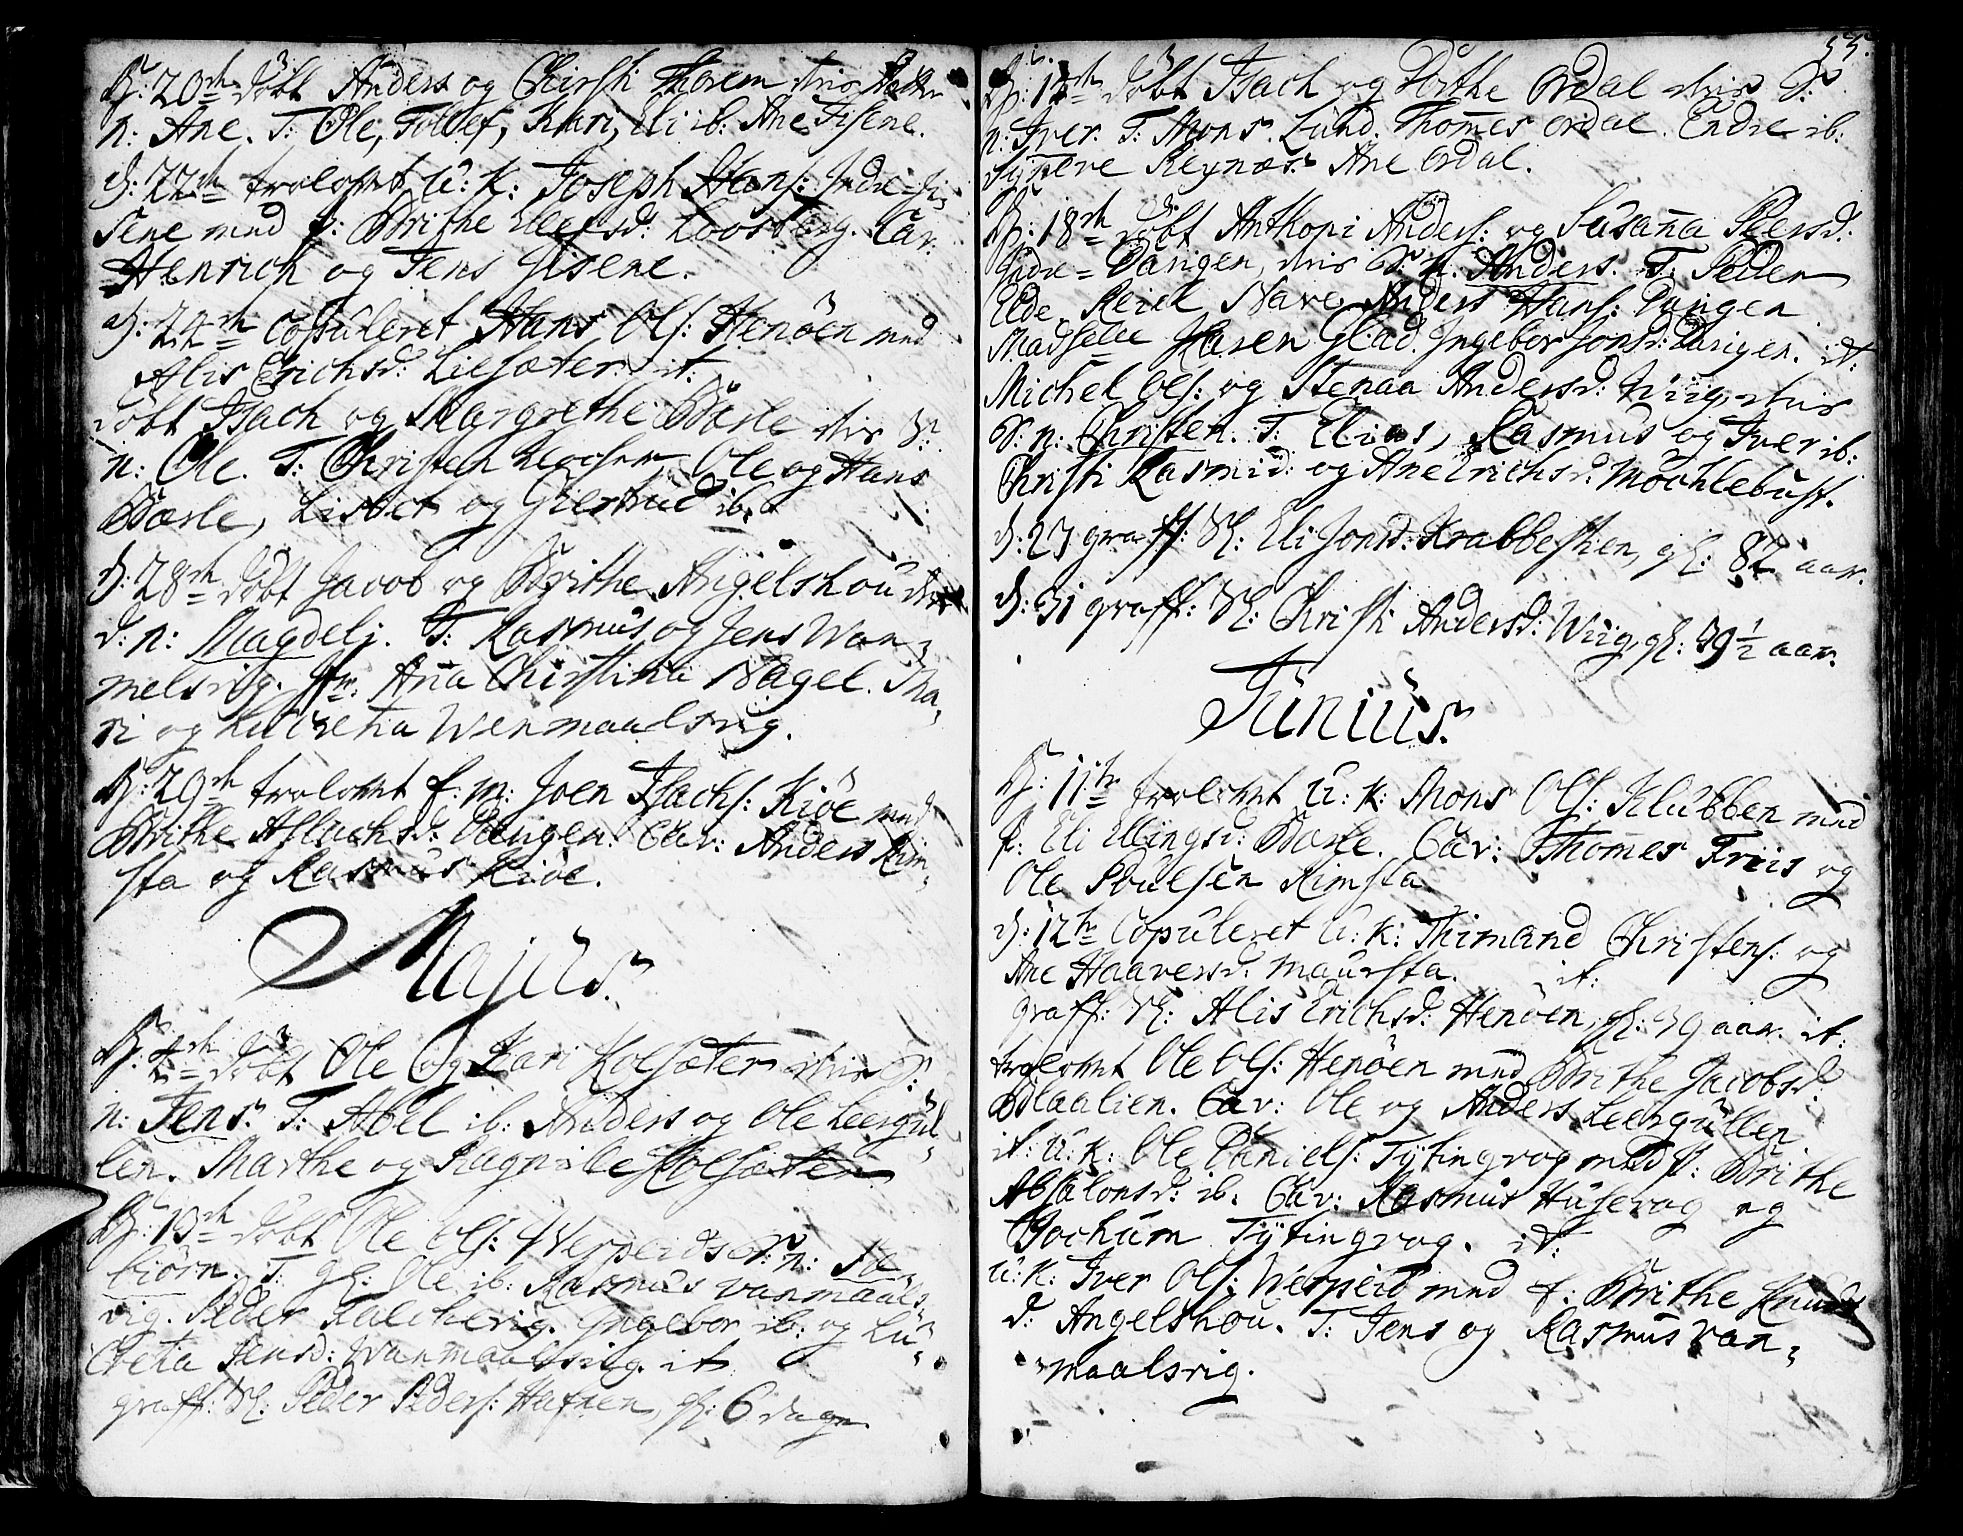 D: 20de döbt Anders og Christi Thorem
n: Ane. T: Ole, Tollef, Kari, Eli ib: Ane Jisene.
D: 22de trolovet U: K: Joseph Hans: Indre Ji-
sene med p: Brithe Ellefsd: Loosberg. Cav:
Henrich og Jens Jisene.
D: 24de Copuleret Hans Ols: Henöen med
Alis Erichsd: Liesæter. it:
döbt Isach og Margrethe Bærle
n: Ole. T: Christen Ole og Hans
Bærle, Lisbet og Giertrud ib:
D: 28de döbt Jacob og Brithe Angelshou
d: n: Magdeli. T: Rasmus og Jens Wan-
melsvig. Jfr: Anna Christina Nagel. Ma-
ri og Lucretia Wenmaalsvig.
D: 29de trolovet f: m: Joen Isachs: Kiöe med
Brithe Aslachsd: Cav: Anders Rim-
sta og Rasmus Kiöe.
Majus.
D: döbt Ole og Kari Kolsæter
n: Jens. T: Abel ib: Anders og Ole Leergul-
len. Marthe og Ragnile Kolsæter
D: 13de döbt Ole Ols: Werpeids S: n:
biörn. T: gl: Ole ib: Rasmus Vanmaals-
vig. Peder Falchevig. Ingebor ib: og Lu-
cretia Jensd: Wanmaalsvig. it
graff: Sl: Peder Peders: Hafnen, gl: 6 dage
55.
döbt Isach og Brithe Ordal
n: Iver. T: Mons Lund. Thommes Ordal. Endre ib:
Synneve Reynæs. Ane Ordal.
D: 18de döbt Anthoni Anders: og Susanna Peersd:
Indre = Dangen, S: n: Anders. T: Peder
Elde. Nave Anders Hans: Dangen
Madselle Karen Glad. Ingebor Jonsd: Dangen. it:
Michel Ols: og Stenaa Andersd: Wiig,
S: n: Christen. T: Elias, Rasmus og Iver ib:
Christi Rasmid: og Ane Erichsd: Möchlebust.
D: 23 graff: Sl: Eli Jonsd: Krabbestien, gl: 82 aar.
D: 31 graff: Sl: Christi Andersd: Wiig, gl: 39 1/2 aar.
Junius.
D: 11te trolovet U: K: Mons Ols: Klubben med
p: Eli Ellingsd: Bærle. Cav: Thommes Friis og
Ole Poulsen Rimsta
D: 12te Copuleret U: K: Thimand Christens: og
Ane Haaversd: Maursta. it:
graff: Sl: Alis Erichsd: Henöen, gl: 39 aar. it:
trolovet Ole Ols: Henöen med Brithe Jacobsd:
Blaalien. Cav: Ole og Anders Leergullen
it: U: K: Ole Daniels: Tytingvog med p: Brithe
Absalonsd: ib. Cav: Rasmus Husevog og
Jochum Tytingvog. it:
U: K: Iver Ols: Werpeid med p: Brithe Knuds
d: Angelshou. T: Jens og Rasmus Van-
maalsvig.